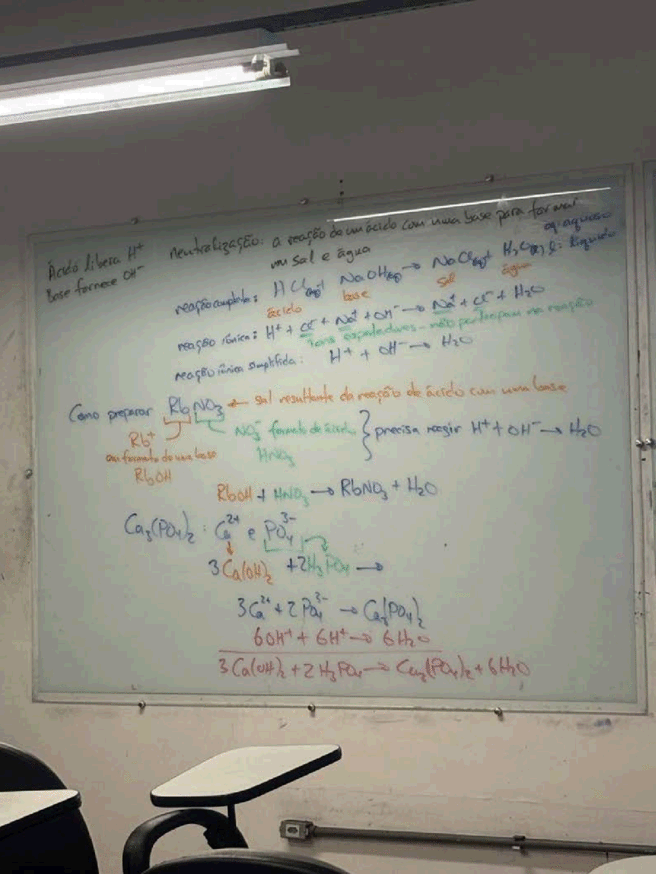 Ácido libera H⁺
base fornece OH⁻
neutralização: a reação de um ácido com uma base para formar
um sal e água
aq: aquoso
l: líquido
reação completa: HCl(aq) + NaOH(aq) → NaCl(aq) + H₂O(l)
ácido base sal água
reação iônica: H⁺ + Cl⁻ + Na⁺ + OH⁻ → Na⁺ + Cl⁻ + H₂O
íons espectadores - não participam na reação
reação iônica simplificada: H⁺ + OH⁻ → H₂O
Como preparar RbNO₃ ← sal resultante da reação de ácido com uma base
Rb⁺ NO₃⁻ formato de ácido } precisa reagir H⁺ + OH⁻ → H₂O
em formato de uma base HNO₃
RbOH
RbOH + HNO₃ → RbNO₃ + H₂O
Ca₃(PO₄)₂ : Ca²⁺ e PO₄³⁻
3Ca(OH)₂ + 2H₃PO₄ →
3Ca²⁺ + 2PO₄³⁻ → Ca₃(PO₄)₂
6OH⁻ + 6H⁺ → 6H₂O
3Ca(OH)₂ + 2H₃PO₄ → Ca₃(PO₄)₂ + 6H₂O